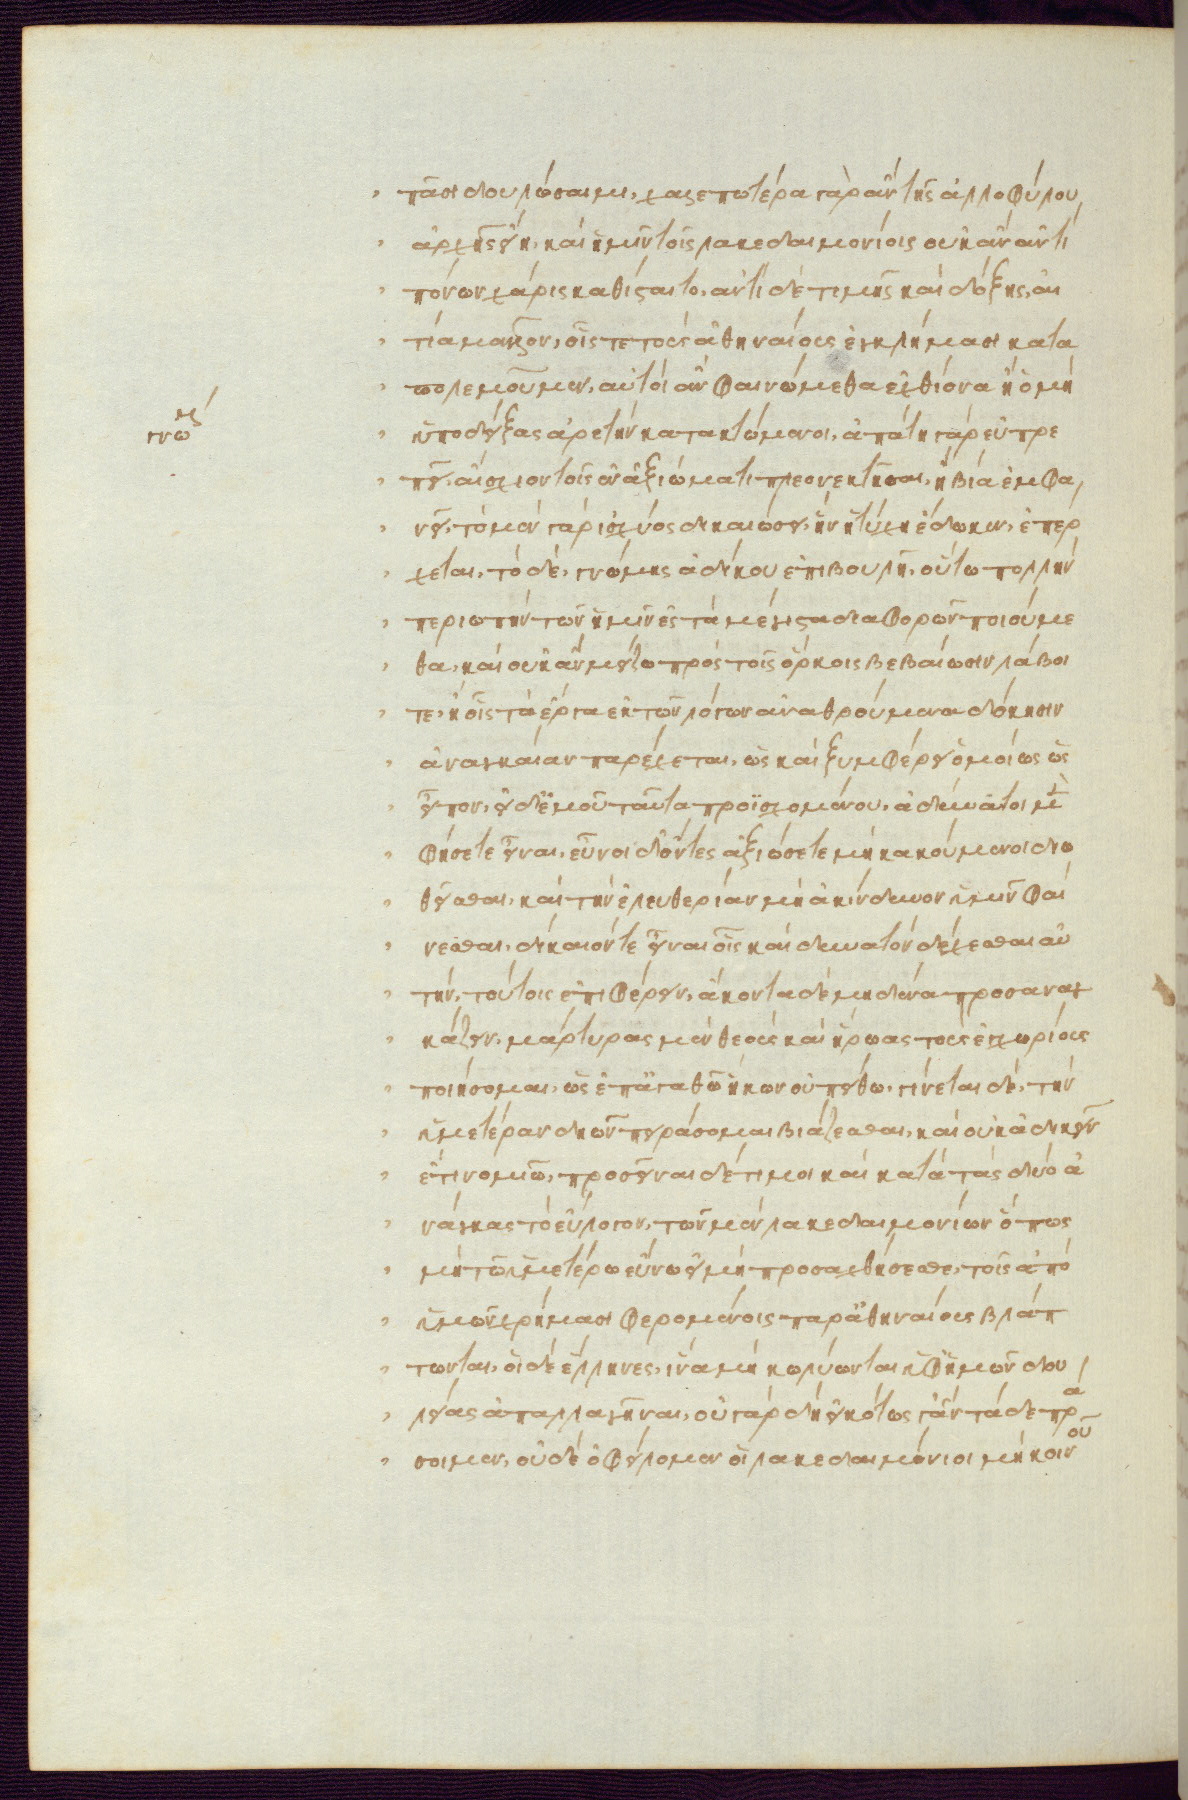 πᾶσι δουλώσαιμι, χαλεπωτέρα γὰρ ἂν τῆς ἀλλοφύλου
ἀρχῆς εἴη, καὶ ἡμῖν τοῖς λακεδαιμονίοις οὐκ ἂν ἀντὶ
πόνων χάρις καθίσταιτο, ἀντὶ δὲ τιμῆς καὶ δόξης, αἰ
τία μᾶλλον, οἷς τε τοὺς ἀθηναίους ἐγκλήμασι κατα
πολεμοῦμεν, αὐτοὶ ἂν φαινώμεθα ἐχθίονα ἢ ὁ μὴ
γνωμ
ὑποδείξας ἀρετὴν κατακτώμενοι, ἀπάτη γὰρ εὐπρε
πεῖ, αἴσχιον τοῖς ἐν ἀξιώματι πλεονεκτῆσαι, ἢ βία ἐμφα
νεῖ, τὸ μὲν γὰρ ἰσχύος δικαιώσει, ἣν ἡ τύχη ἔδωκεν, ἐπέρ
χεται, τὸ δὲ, γνώμης ἀδίκου ἐπιβουλῆ, οὕτω πολλὴν
περιωπὴν τῶν ἡμῖν ἐς τὰ μέγιστα διαφορῶν ποιούμε
θα, καὶ οὐκ ἂν μείζω πρὸς τοῖς ὅρκοις βεβαίωσιν λάβοι
τε, ἢ οἷς τὰ ἔργα ἐκ τῶν λόγων ἀναθρούμενα δόκησιν
ἀναγκαίαν παρέχεται, ὡς καὶ ξυμφέρει ὁμοίως ὡς
εἶπον, εἰ δ' ἐμοῦ ταῦτα προϊσχομένου, ἀδύνατοι μὲν
φήσετε εἶναι, εὖνοι δ' ὄντες ἀξιώσετε μὴ κακούμενοι διω
θεῖσθαι, καὶ τὴν ἐλευθερίαν μὴ ἀκίνδυνον ὑμῖν φαί
νεσθαι, δίκαιόν τε εἶναι οἷς καὶ δυνατὸν δέχεσθαι αὐ
τὴν, τούτοις ἐπιφέρειν, ἄκοντα δὲ μηδένα προσαναγ
κάζειν, μάρτυρας μὲν θεοὺς καὶ ἥρωας τοὺς ἐγχωρίους
ποιήσομαι, ὡς ἐπ' ἀγαθῶ ἥκων οὐ πείθω, γίνεται δὲ, τὴν
ὑμετέραν δηῶν πειράσομαι βιάζεσθαι, καὶ οὐκ ἀδικεῖν
ἔτι νομιῶ, προσεῖναι δέ τι μοι καὶ κατὰ τὰς δύο ἀ
νάγκας τὸ εὔλογον, τῶν μὲν λακεδαιμονίων ὅπως
μὴ τῶ ὑμετέρω εὔνω εἰ μὴ προσαχθήσεσθε, τοῖς ἀπὸ
ὑμῶν χρήμασι φερομένοις παρ' ἀθηναίους βλάπ
τωνται, οἱ δὲ ἕλληνες, ἵνα μὴ κωλύωνται ὑφ' ἡμῶν δου
λείας ἀπαλλαγῆναι, οὐ γὰρ δὴ εἰκότως γ' ἂν τάδε πρά
σοιμεν, οὐδὲ ὀφείλομεν οἱ λακεδαιμόνιοι μὴ κοινοῦ